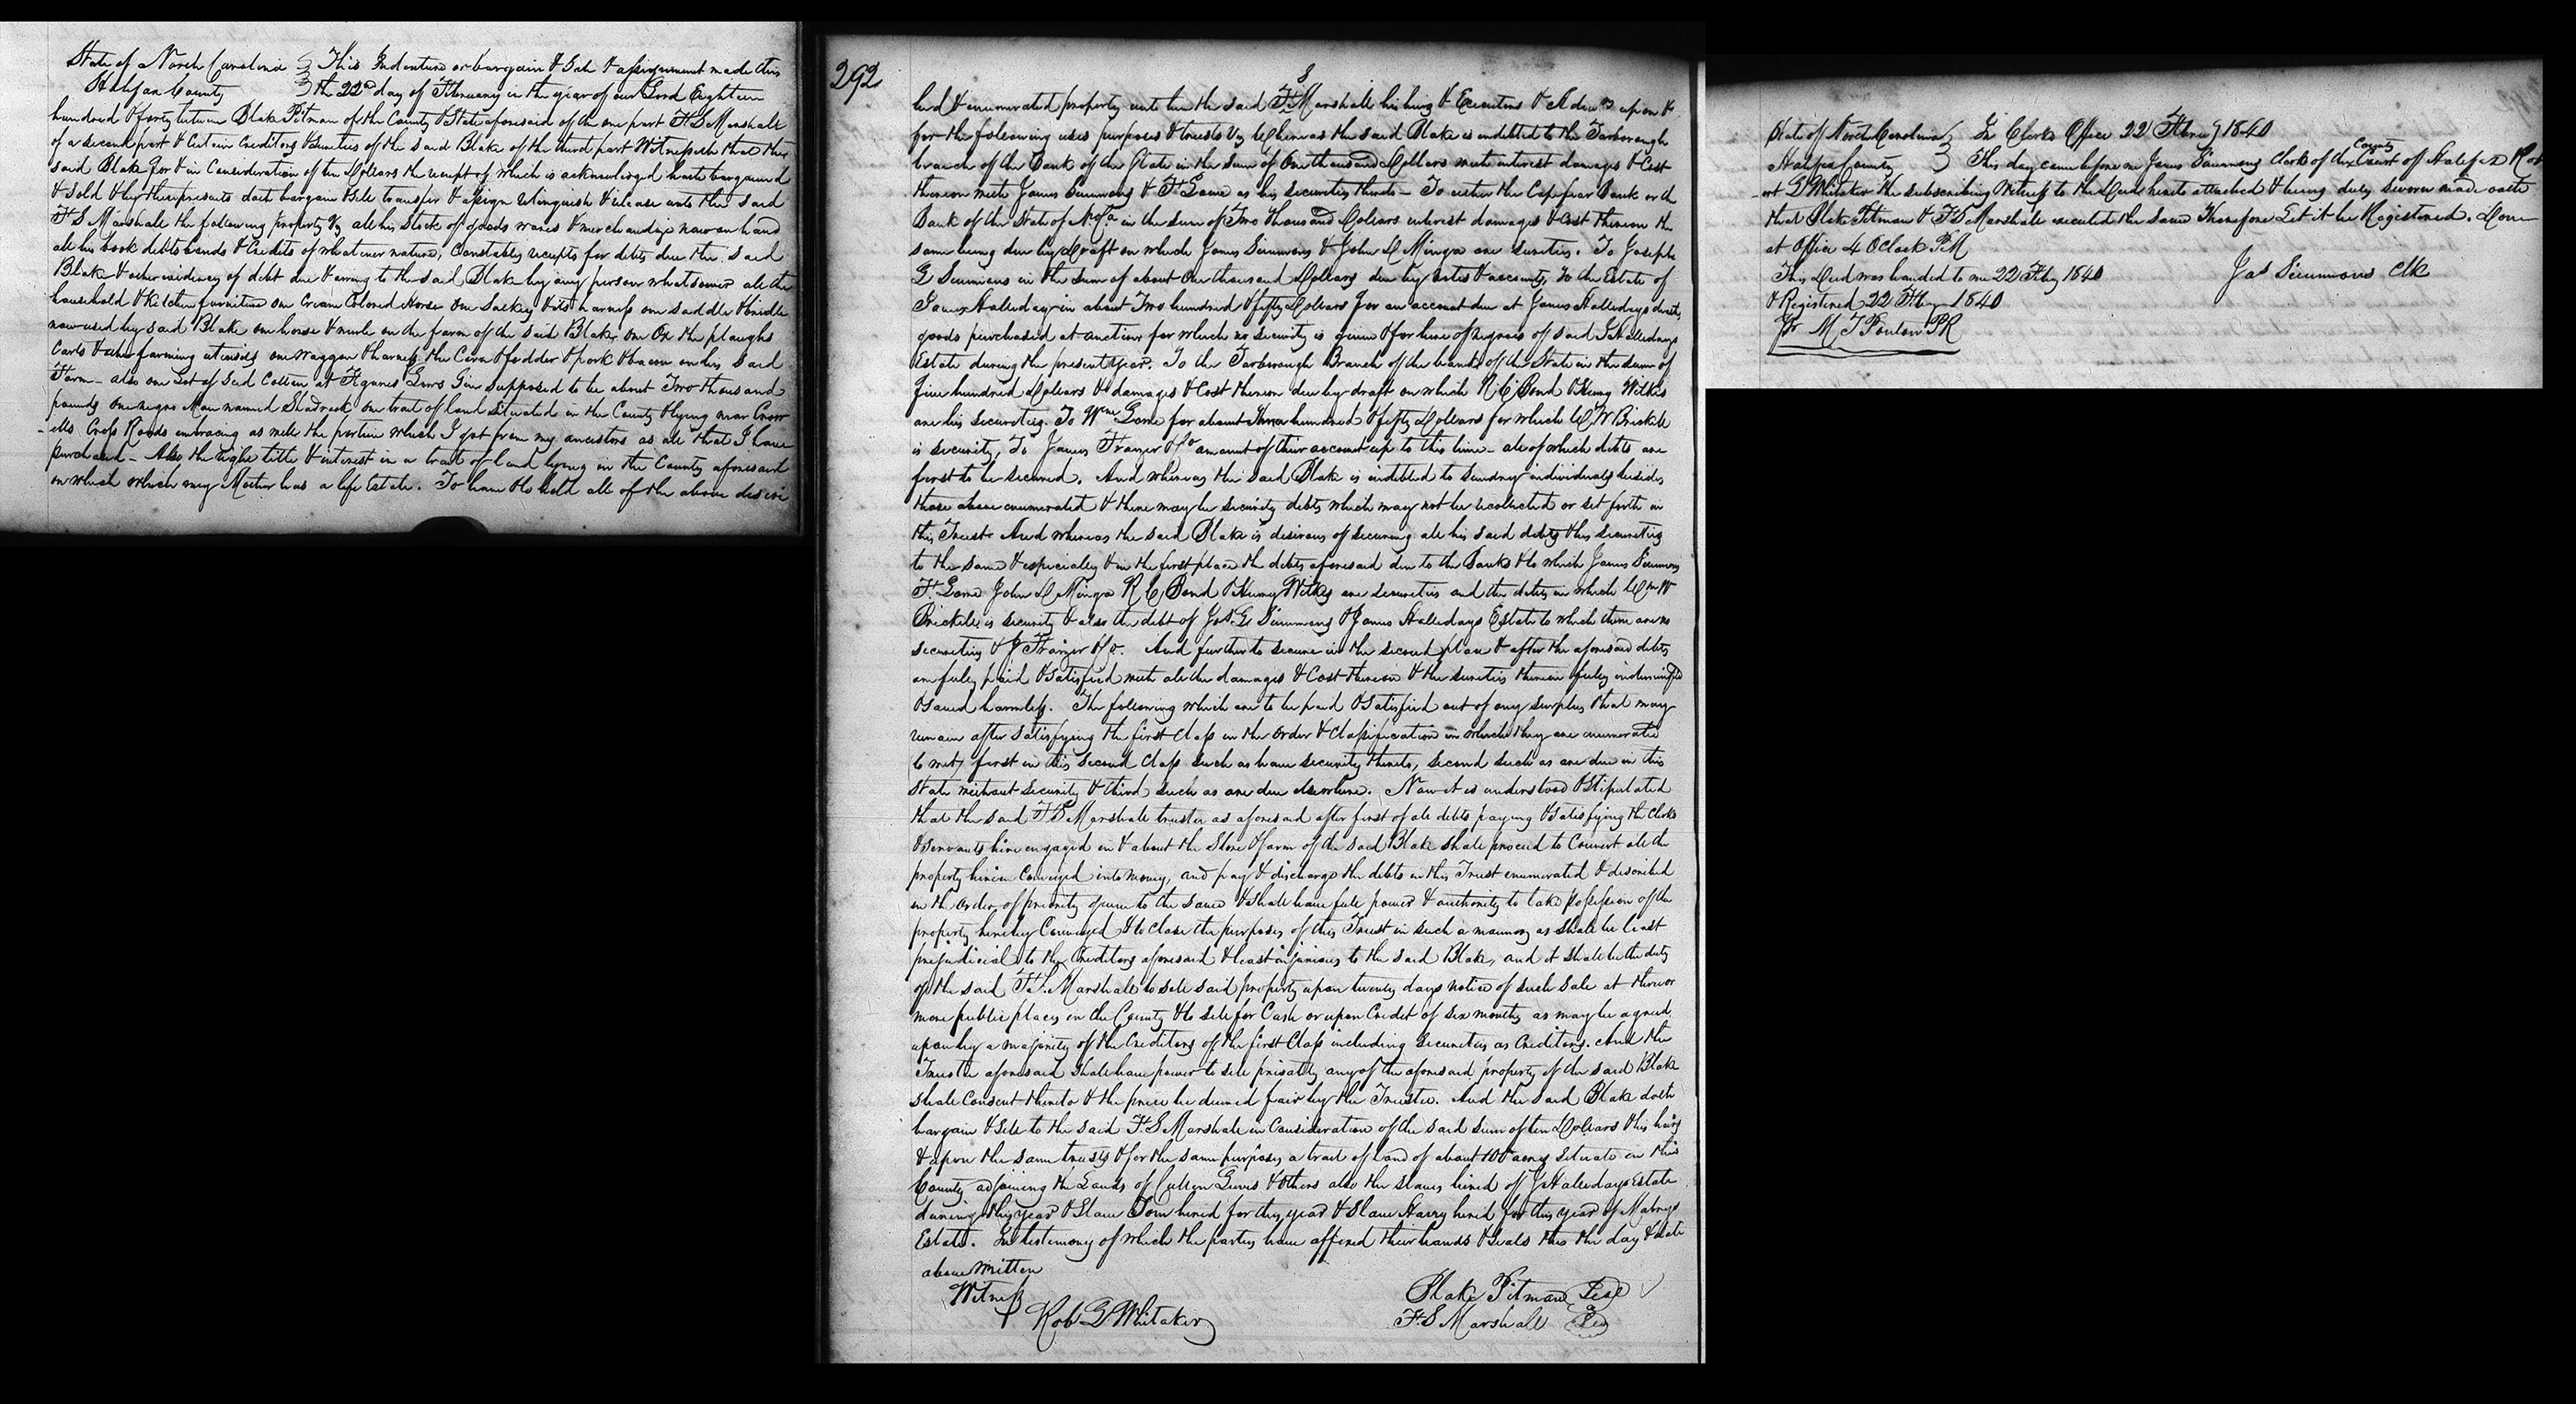 State of North Carolina } This Indenture or bargain & Sale & assignment made this
Halifax County } the 22nd day of February in the year of our Lord Eighteen
hundred & forty between Blake Pitman of the County & State aforesaid of the one part F S Marshall
of a second part & Certain Creditors & Sureties of the said Blake of the third part Witnesseth that the
said Blake for & in Consideration of ten Dollars the receipt of which is acknowledged hath bargained
& sold & by these presents doth bargain & sell transfer & assign relinquish & release unto the said
F S Marshall the following property Vz all his Stock of goods wares & merchandize now on hand
all his book debts bonds & Credits of whatever nature, Constables receipts for debts due the said
Blake & other evidences of debt due & owing to the said Blake by any person whatsoever all the
household & kitchen furniture one Cream Colored Horse one Sulkey & its harness one saddle & bridle
now used by said Blake one horse & mule on the farm of the said Blake, one Ox the ploughs
Carts & other farming utensils one waggon & harness the Corn & fodder & pork & bacon on his said
Farm - also one Lot of Seed Cotton at Gin supposed to be about Two thousand
pounds one negro Man named Shadrack one tract of land situated in the County & lying near Crow
-ells Cross Roads embracing as well the portion which I got from my ancestors as all that I have
purchased - Also the right title & interest in a tract of land lying in the County aforesaid
on which which my Mother has a life Estate. To have & to hold all of the above descri
292
bed & enumerated property unto him the said F S Marshall his heirs & Executors & Admrs upon &
for the following uses purposes & trusts Vz Whereas the said Blake is indebted to the Tarborough
branch of the Bank of the State in the sum of One thousand Dollars with interest damages & Cost
thereon with James Simmons & F as his securities thereto - To either the Cape fear Bank or the
Bank of the State of No Ca in the sum of Two thousand Dollars interest damages & Cost thereon the
same being due by Draft on which James Simmons & John D Minga are sureties. To Joseph
G Simmons in the sum of about One thousand Dollars due by notes & accounts, To the Estate of
James Halleday in about Two hundred & fifty Dollars for an account due at James Halledays death,
goods purchased at auction for which no security is given & for hire of negroes of said J Halledays
Estate during the present year. To the Tarborough Branch of the bank of the State in the sum of
five hundred Dollars & damages & Cost thereon due by draft on which R C Bond & Henry Wilkes
are his securities. To Wm for about three hundred & fifty Dollars for which W Brickell
is security, To James Frazier & Co amount of their account up to this time - all of which debts are
first to be secured. And whereas the said Blake is indebted to sundry individuals besides
those above enumerated & there may be security debts which may not be recollected or set forth in
this Trust. And whereas the said Blake is desirous of securing all his said debts & his securities
to the same & especially & in the first place the debts aforesaid due to the banks & to which James Simmons
F John D Minga R C Bond & Henry Wilkes are securities and the debts in which Wm W
Brickell is security & also the debt of Jos G Simmons & James Halledays Estate to which there are no
securities & J Frazier & Co. And further to secure in the second place & after the aforesaid debts
are fully paid & satisfied with all the damages & Cost thereon & the sureties therein fully indemnified
& saved harmless. The following which are to be paid & satisfied out of any surplus that may
remain after satisfying the first class in the order & classification in which they are enumerated
to wit, first in this second class such as have security thereto, second such as are due in this
State without security & third such as are due elsewhere. Now it is understood & stipulated
that the said F S Marshall trustee as aforesaid after first of all debts paying & satisfying the Clerks
& servants hire engaged in & about the Store & farm of the said Blake shall proceed to Convert all the
property herein Conveyed into money, and pay & discharge the debts in this Trust enumerated & described
in the order of priority given to the same & shall have full power & authority to take possession of the
property hereby Conveyed & to close the purposes of this Trust in such a manner as shall be least
prejudicial to the Creditors aforesaid & least injurious to the said Blake, and it shall be the duty
of the said F S. Marshall to sell said property upon twenty days notice of such sale at three or
more public places in the County & to sell for Cash or upon Credit of six months as may be agreed
upon by a majority of the Creditors of the first Class including securities as Creditors. And the
Trustee aforesaid shall have power to sell privately any of the aforesaid property if the said Blake
shall Consent thereto & the price be deemed fair by the Trustee. And the said Blake doth
bargain & sell to the said F S Marshall in Consideration of the said sum of ten Dollars & his heirs
& upon the same trusts & for the same purposes a tract of land of about 100 acres situate in this
County adjoining the Lands of & others also the slaves hired of J Halledays Estate
during this year & Slave Tom hired for this year & Slave Harry hired for this year of Mabrys
Estate. In testimony of which the parties have affixed their hands & seals this the day & date
above written
Witness
Rob G Whitaker
Blake Pitman Seal
F S Marshall Seal
State of North Carolina } In Clerks Office 22 Feby 1840
Halifax County } This day came before me James Simmons Clerk of the County Court of Halifax Rob
-ert G Whitaker the subscribing witness to the Deed hereto attached & being duly sworn made oath
that Blake Pitman & F S Marshall executed the same Therefore Let it be Registered. Done
at Office 4 OClock PM
Jas Simmons Clk
This Deed was handed to me 22 Feby 1840
& Registered 22 Feby 1840
Pr M T Ponton PR